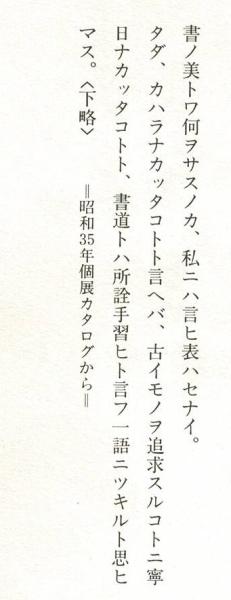 書ノ美トワ何ヲサスノカ、私ニハ言ヒ表ハセナイ。
タダ、カハラナカッタコトト言ヘバ、古イモノヲ追求スルコトニ寧
日ナカッタコトト、書道トハ所詮手習ヒト言フ一語ニツキルト思ヒ
マス。〈下略〉
＝昭和35年個展カタログから＝